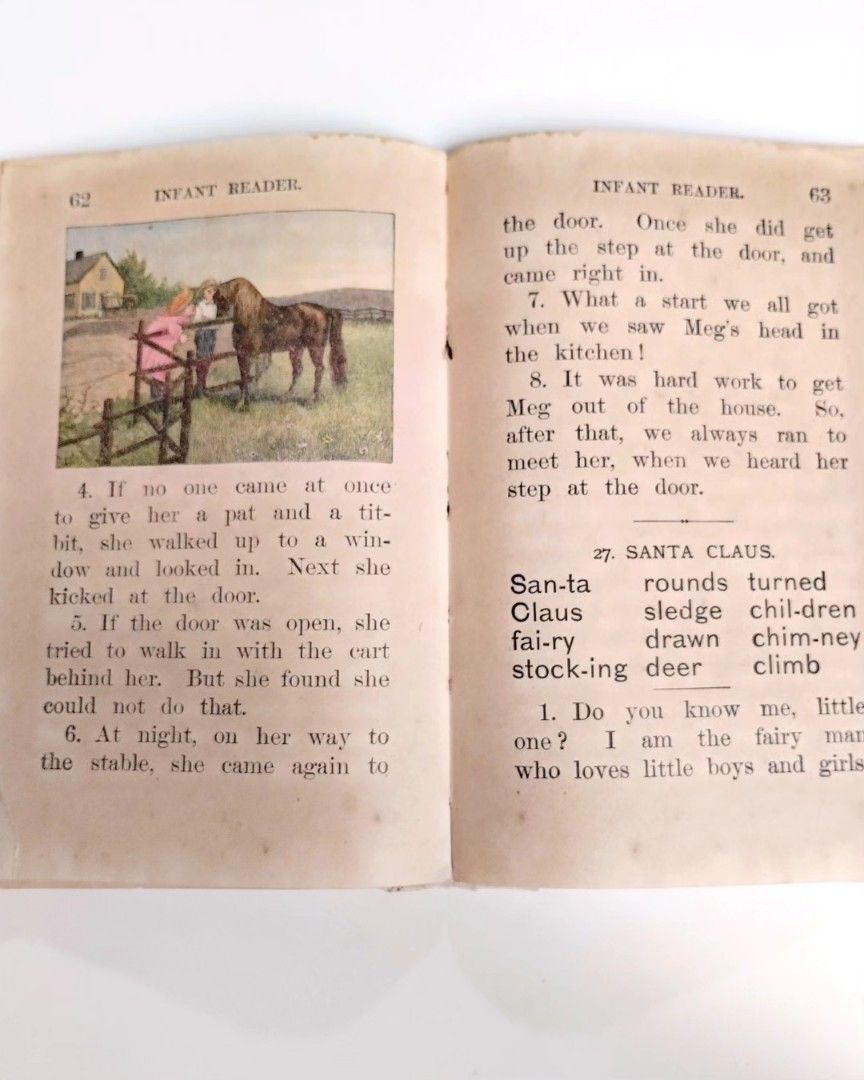 62 INFANT READER.
4. If no one came at once
to give her a pat and a tit-
bit, she walked up to a win-
dow and looked in. Next she
kicked at the door.
5. If the door was open, she
tried to walk in with the cart
behind her. But she found she
could not do that.
6. At night, on her way to
the stable, she came again to
INFANT READER. 63
the door. Once she did get
up the step at the door, and
came right in.
7. What a start we all got
when we saw Meg's head in
the kitchen!
8. It was hard work to get
Meg out of the house. So,
after that, we always ran to
meet her, when we heard her
step at the door.
27. SANTA CLAUS.
San-ta rounds turned
Claus sledge chil-dren
fai-ry drawn chim-ney
stock-ing deer climb
1. Do you know me, little
one? I am the fairy man
who loves little boys and girls